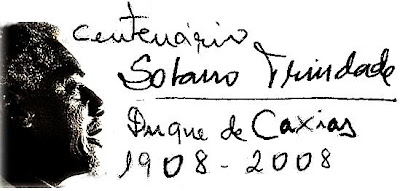 centenário
Solano Trindade
Duque de Caxias
1908-2008